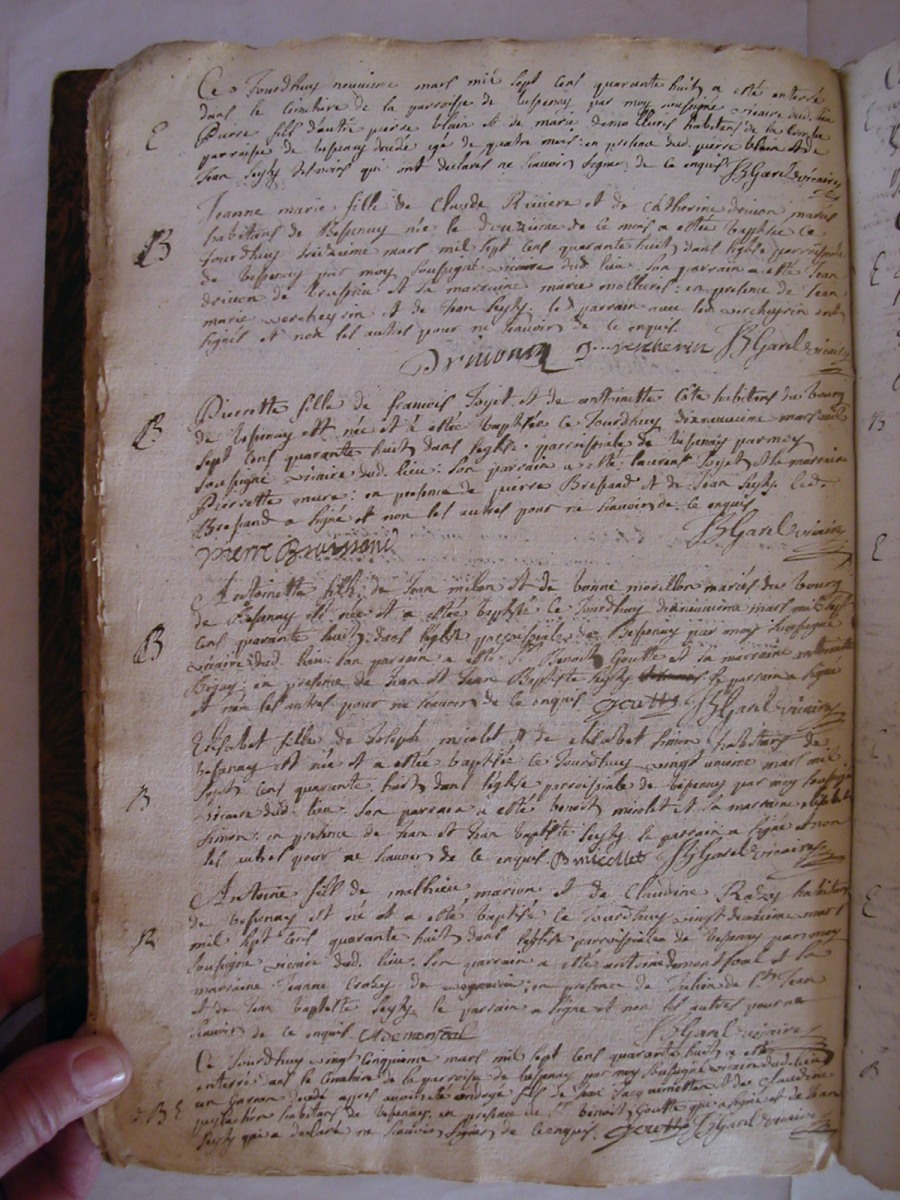 Ce Jourdhuy neuvieme mars mil sept cens quarante huit a esté enterré
dans le cimitiere de la parroisse de Bessenay par moy soussigné vicaire dud. lieu
E Pierre fils d'autre pierre blain et de marie demollieres habitans de la
parroisse de Bessenay décédé agé de quatre mois: en presence dud. pierre blain et de
Jean Seyty qui ont declarés ne scavoir signer de ce enquis JB Garel vicaire
Jeanne marie fille de Claude Riviere et de Catherine drivon mariés
B habitans de Bessenay née le douzieme de ce mois a estée baptisée ce
Jourdhuy treizieme mars mil sept cens quarante huit dans leglise parroissiale
de Bessenay par moy soussigné vicaire dud. lieu. son parrain a esté Jean
drivon de et sa marraine marie mollieres: en presence de Jean
marie vercherin et de Jean Seyty. le parrain avec led. vercheyrin ont
signés et non les autres pour ne scavoir de ce enquis
Drivonn vercherin JB Garel vicaire
Pierrette fille de francois Jojet et de antoinette Cote habitans du bourg
B de Bessenay est née et a estée baptisée ce Jourdhuy dixneuvieme mars mil
sept cens quarante huit dans leglise parroissiale de Bessenay par moy
soussigné vicaire dud. lieu: son parrain a esté laurent Jojet et la marraine
Pierrette mure: en presence de pierre Bressand et de Jean Seyty. led.
Bressand a signé et non les autres pour ne scavoir de ce enquis
JB Garel vicaire
pierre Braissand
Antoinette fille de Jean milon et de bonne morillon mariés du bourg
de Bessenay est née et a estée baptisée ce Jourdhuy dixneuvieme mars mil sept
B cens quarante huit dans leglise parroissiale de Bessenay par moy soussigné
vicaire dud. lieu. son parrain a esté Sr Benoit Goutte et sa marraine antoinette
: en presence de Jean et Jean Baptiste Seyty le parrain a signé
et non les autres pour ne scavoir de ce enquis goutte JB Garel vicaire
Elisabet fille de Joseph micolet et de elisabet simon habitans de
Bessenay est née et a estée baptisée ce Jourdhuy vingt unieme mars mil
B sept cens quarante huit dans leglise parroissiale de Bessenay par moy soussigné
vicaire dud. lieu. son parrain a esté benoit micolet et sa marraine elisabet
simon: en presence de Jean et Jean baptiste Seyty le parrain a signé et non
les autres pour ne scavoir de ce enquis B micollet JB Garel vicaire
Antoine fils de mathieu marion et de Claudine habitans
de Bessenay est né et a esté baptisé ce Jourdhuy vingt deuxieme mars
B mil sept cens quarante huit dans leglise parroissiale de Bessenay par moy
soussigné vicaire dud. lieu. son parrain a esté antoine et la
marraine Jeanne Crozy de : en presence de Jean
et de Jean baptiste Seyty le parrain a signé et non les autres pour ne
scavoir de ce enquis JB Garel vicaire
Ce Jourdhuy vingt cinquieme mars mil sept cens quarante huit a esté
enterré dans le cimitiere de la parroisse de Bessenay par moy soussigné vicaire dud. lieu
B E un garcon decedé apres avoir esté ondoyé fils de Jean Jacquemetton et de Claudine
habitans de Bessenay. en presence de Sr benoit Goutte qui a signé et de Jean
Seyty qui a declaré ne scavoir signer de ce enquis. goutte JB Garel vicaire